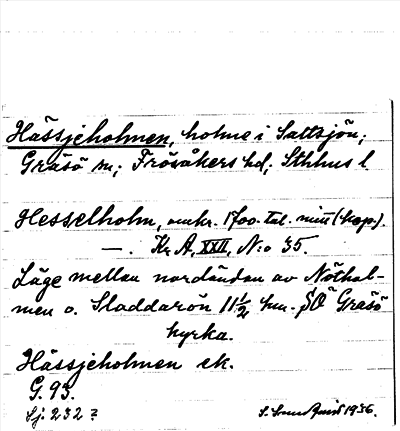 Hässjeholmen, holme i Saltsjön;
Gräsö sn; Frösåkers hd; Sthlms l.
Hesselholm, omkr. 1700-tal. mitt (kop.).
—. Kr. A, XXII, N:o 35.
Läge mellan nordändan av Nöthol-
men o. Sladdarön 11½ km. SO Gräsö
kyrka.
Hässjeholmen ek.
G. 93.
Sj. 232?
1936.